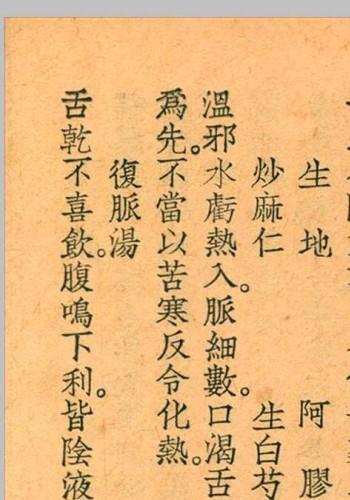 生地 阿膠
炒麻仁 生白芍
溫邪水虧熱入。脈細數。口渴舌
爲先。不當以苦寒反令化熱。
復脈湯
舌乾不喜飲。腹鳴下利。皆陰液